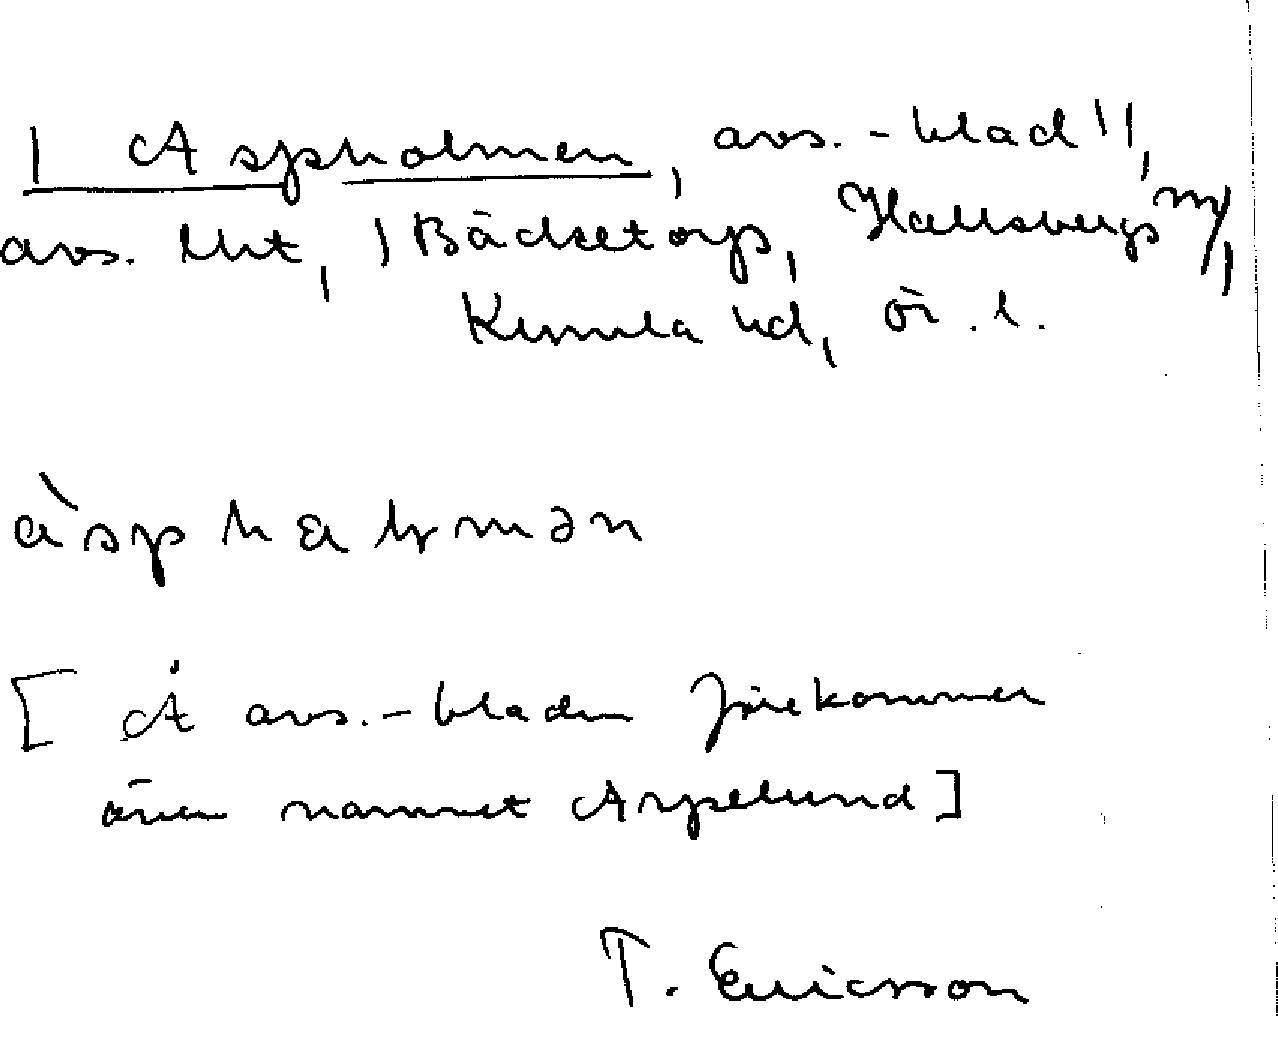 | Aspholmen, avs.-blad !|,
avs. lht, | Bädsetorp, Hallsbergs
Kumla hd, Ör. l.
àsphalmən
[ Å avs.-bladen förekommer
även namnet Aspelund]
T. Ericsson